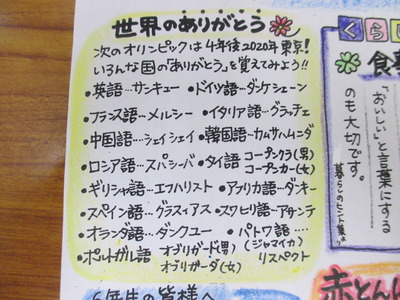 世界のありがとう
次のオリンピックは4年後2020年東京!
いろんな国の「ありがとう」を覚えてみよう!!
•英語…サンキュー •ドイツ語…ダンケシェーン
•フランス語…メルシー •イタリア語…グラッチェ
•中国語…シェイシェイ •韓国語…カムサハムニダ
•ロシア語…スパシーバ •タイ語 コープンクラ(男)
コープンカー(女)
•ギリシャ語…エフハリスト •アフリカ語…ダンキー
•スペイン語…グラスィアス •スワヒリ語…アサンテ
•オランダ語…ダンクユー •パトワ語….
(ジャマイカ)
リスペクト
•ポルトガル語 オブリガード(男)
オブリガーダ(女)
6年生の皆様へ
くらし
食事
「おいしい」と言葉にする
のも大切です。
暮らしのヒント集より
赤とんぼ